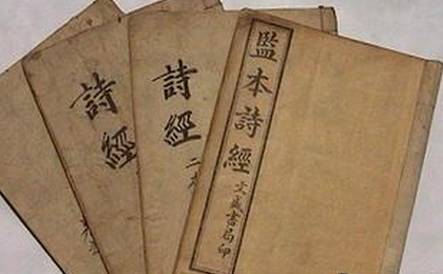 監本詩經
文盛書局印
詩經
詩經